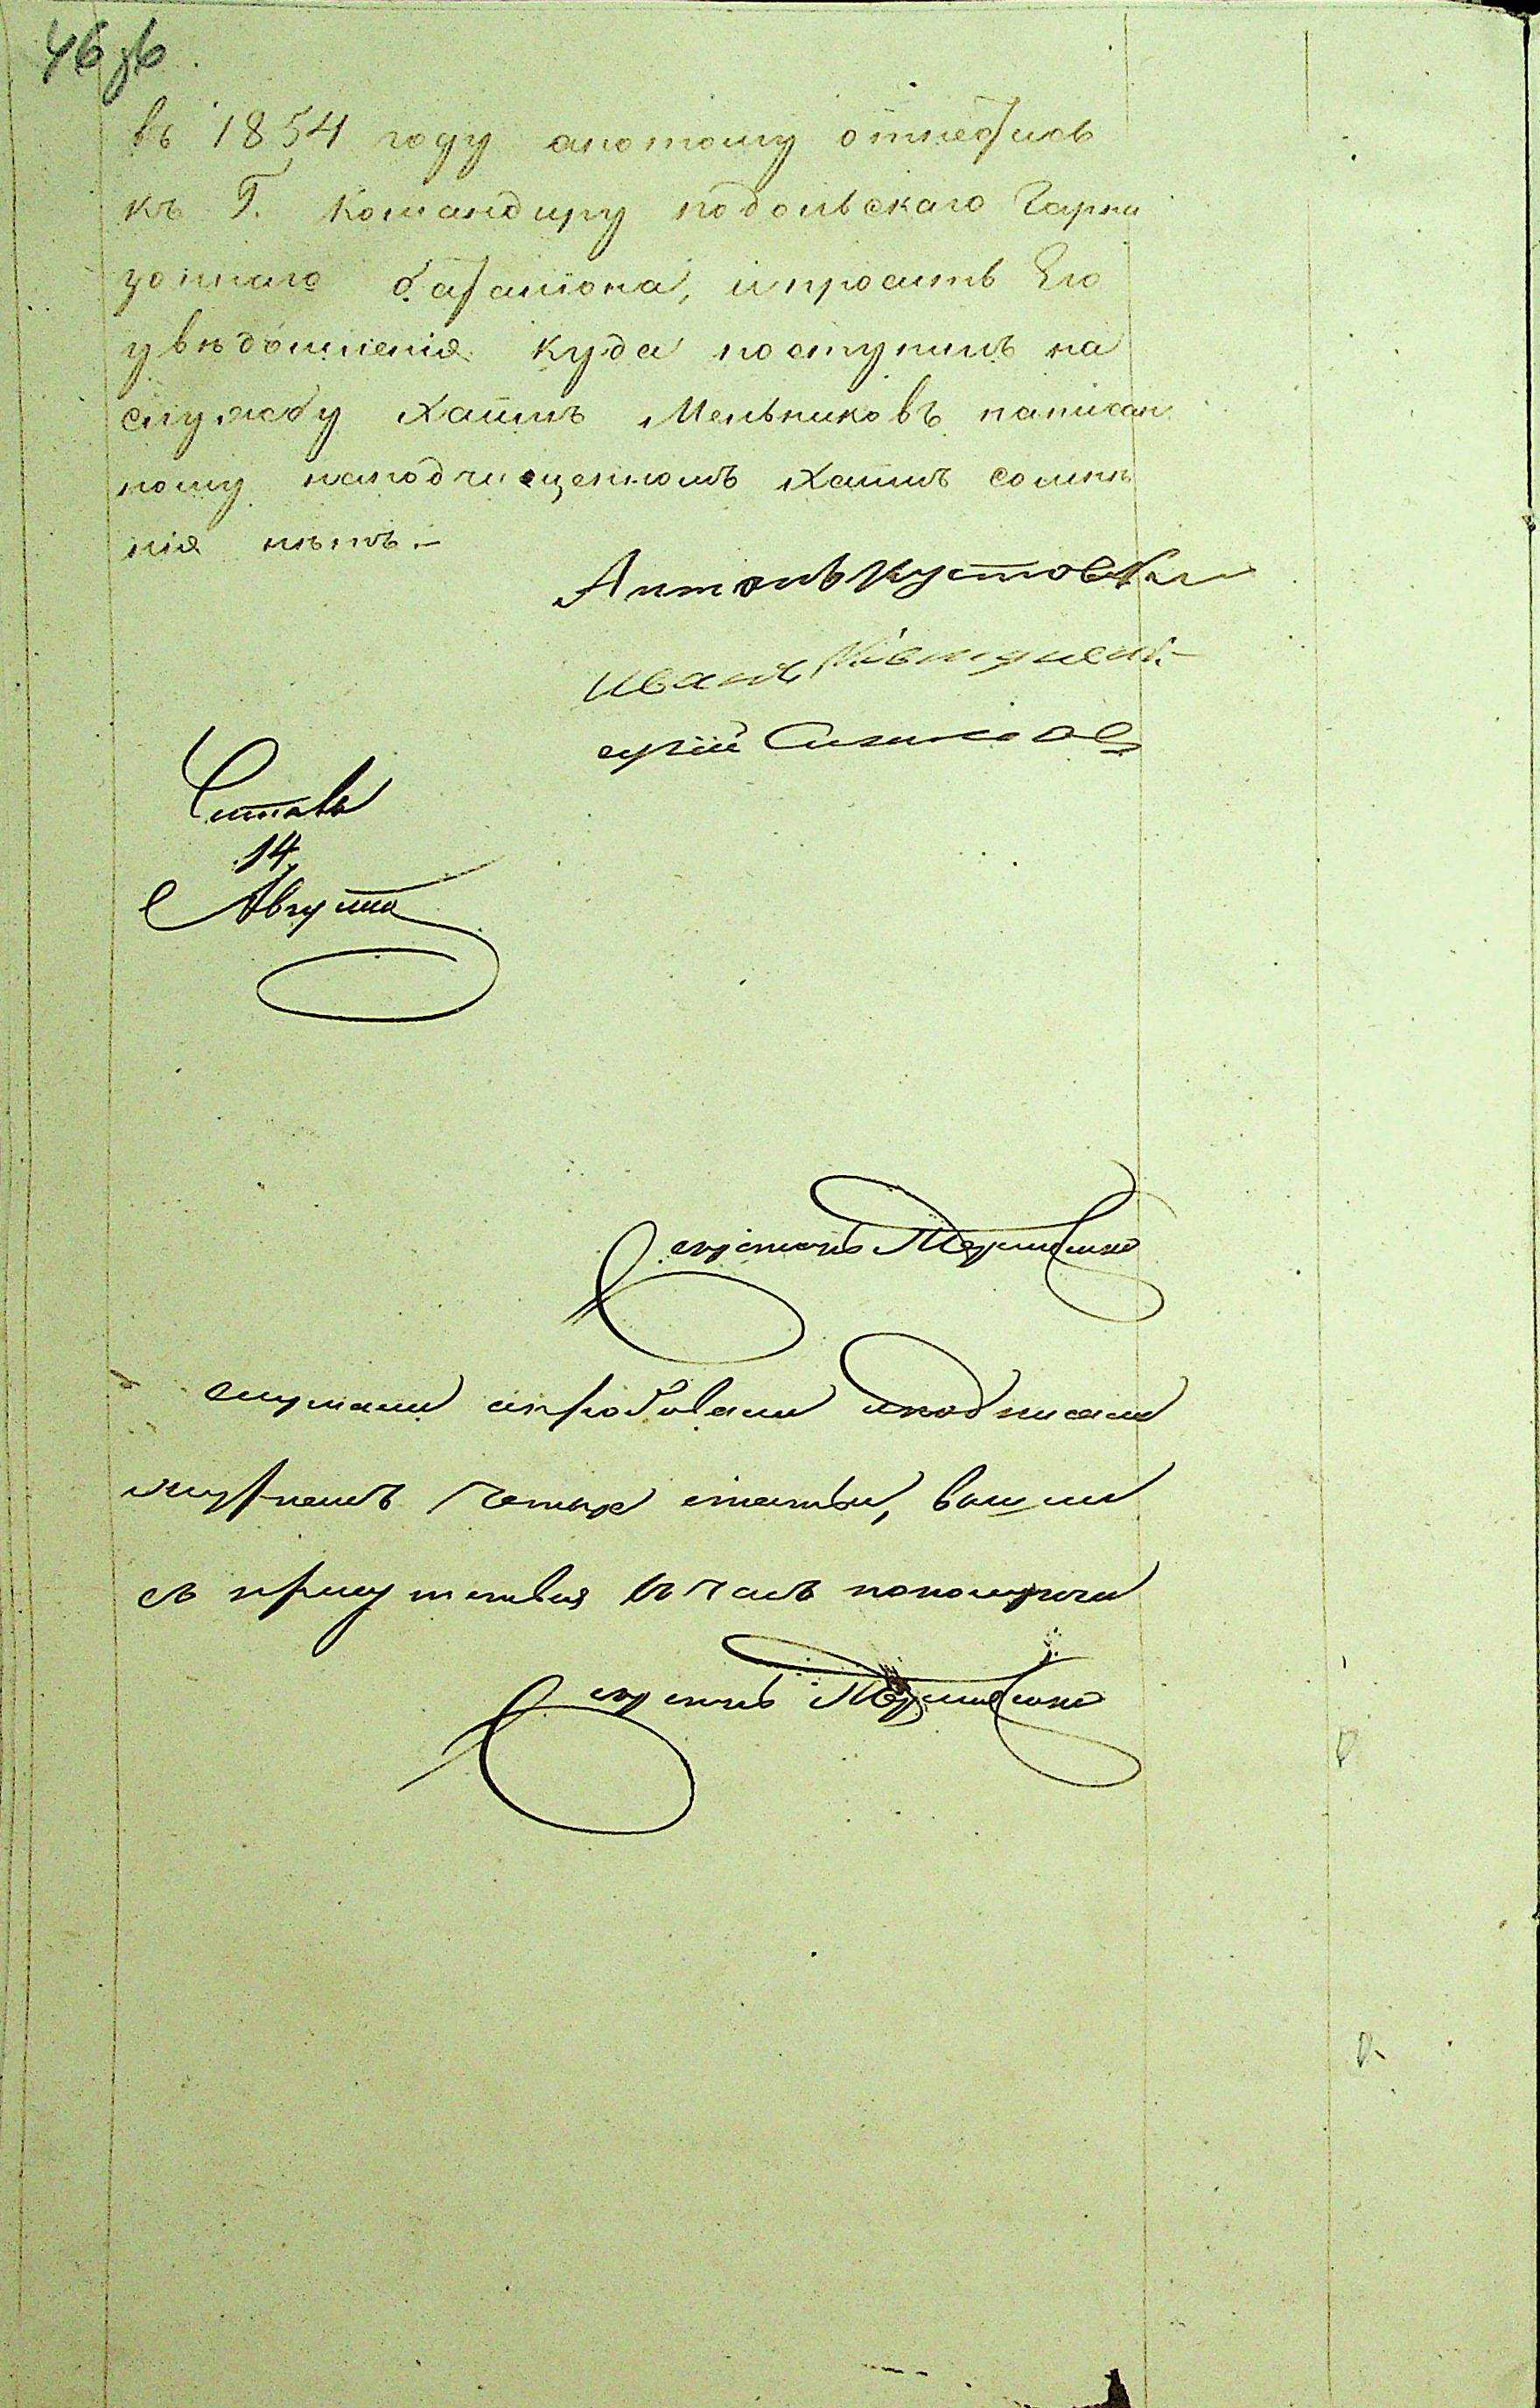 46 об
въ 1854 году апотому отнестись
къ Г. Командиру подольскаго Гарни
зоннаго баталіона, ипросить Его
увѣдомленія куда поступилъ на
службу Хаимъ Мельниковъ написан
ному наподчищенномъ Хаимъ сомнѣ
нія нѣтъ.-
Антонъ
Иванъ
Читалъ
14
Августа
Секретарь
слушали апробовали иподписали
журналъ статьи, вышли
съ присутствія въ часъ пополудни
Секретарь